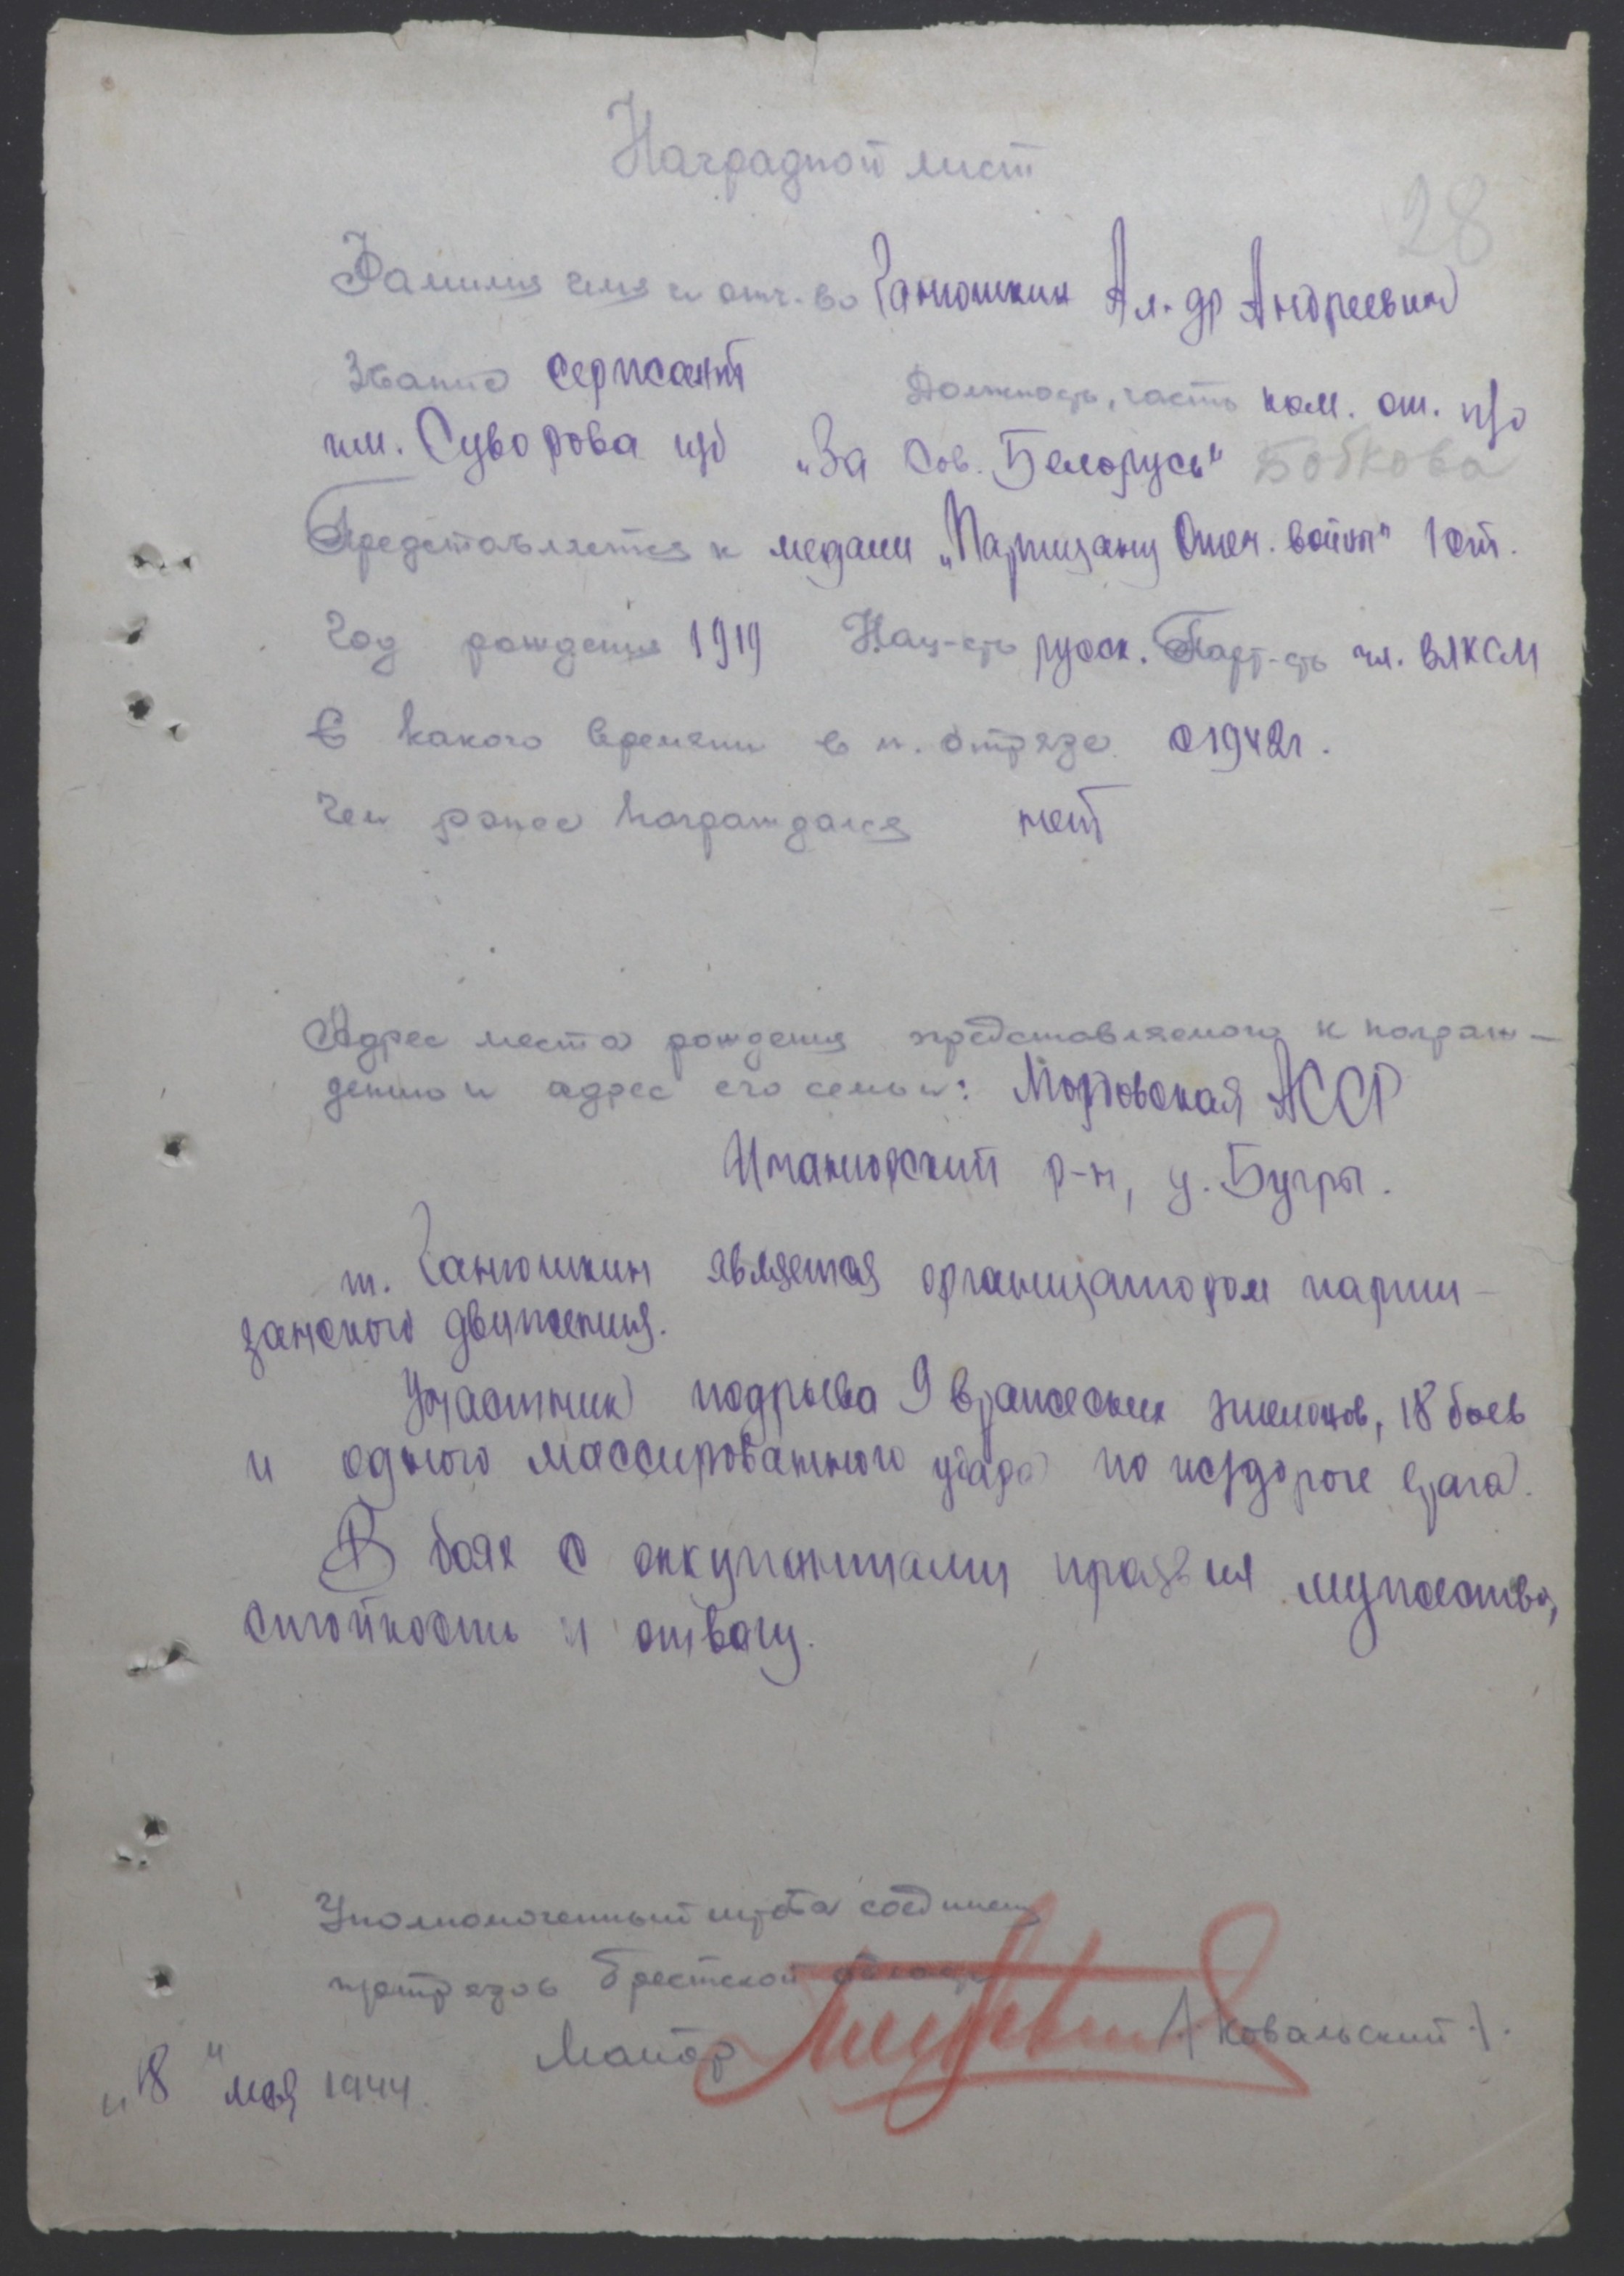 Наградной лист
28
Фамилия имя и отч-во Ганюшкин Ал-др Андреевич
Звание сержант Должность, часть ком. от. п/о
им. Суворова п/б „За Сов. Белорусь" Бобкова
Представляется к медали „Партизану Отеч. войны" I ст.
Год рождения 1919 Нац-сть русск. Парт-сть чл. ВЛКСМ
С какого времени в п. отряде с 1942 г.
Чем ранее награждался нет
Адрес места рождения представляемого к награж-
дению и адрес его семьи: Мордовская АССР
р-н, д. Бугры.
т. Ганюшкин является организатором парти-
занского движения.
Участник подрыва 9 вражеских эшелонов, 18 боев
и одного массированного удара по жел/дороге врага.
В боях с оккупантами проявил мужество,
стойкость и отвагу.
Уполномоченный штаба соединен
партотрядов Брестской области
Майор /Ковальский/.
„18" мая 1944